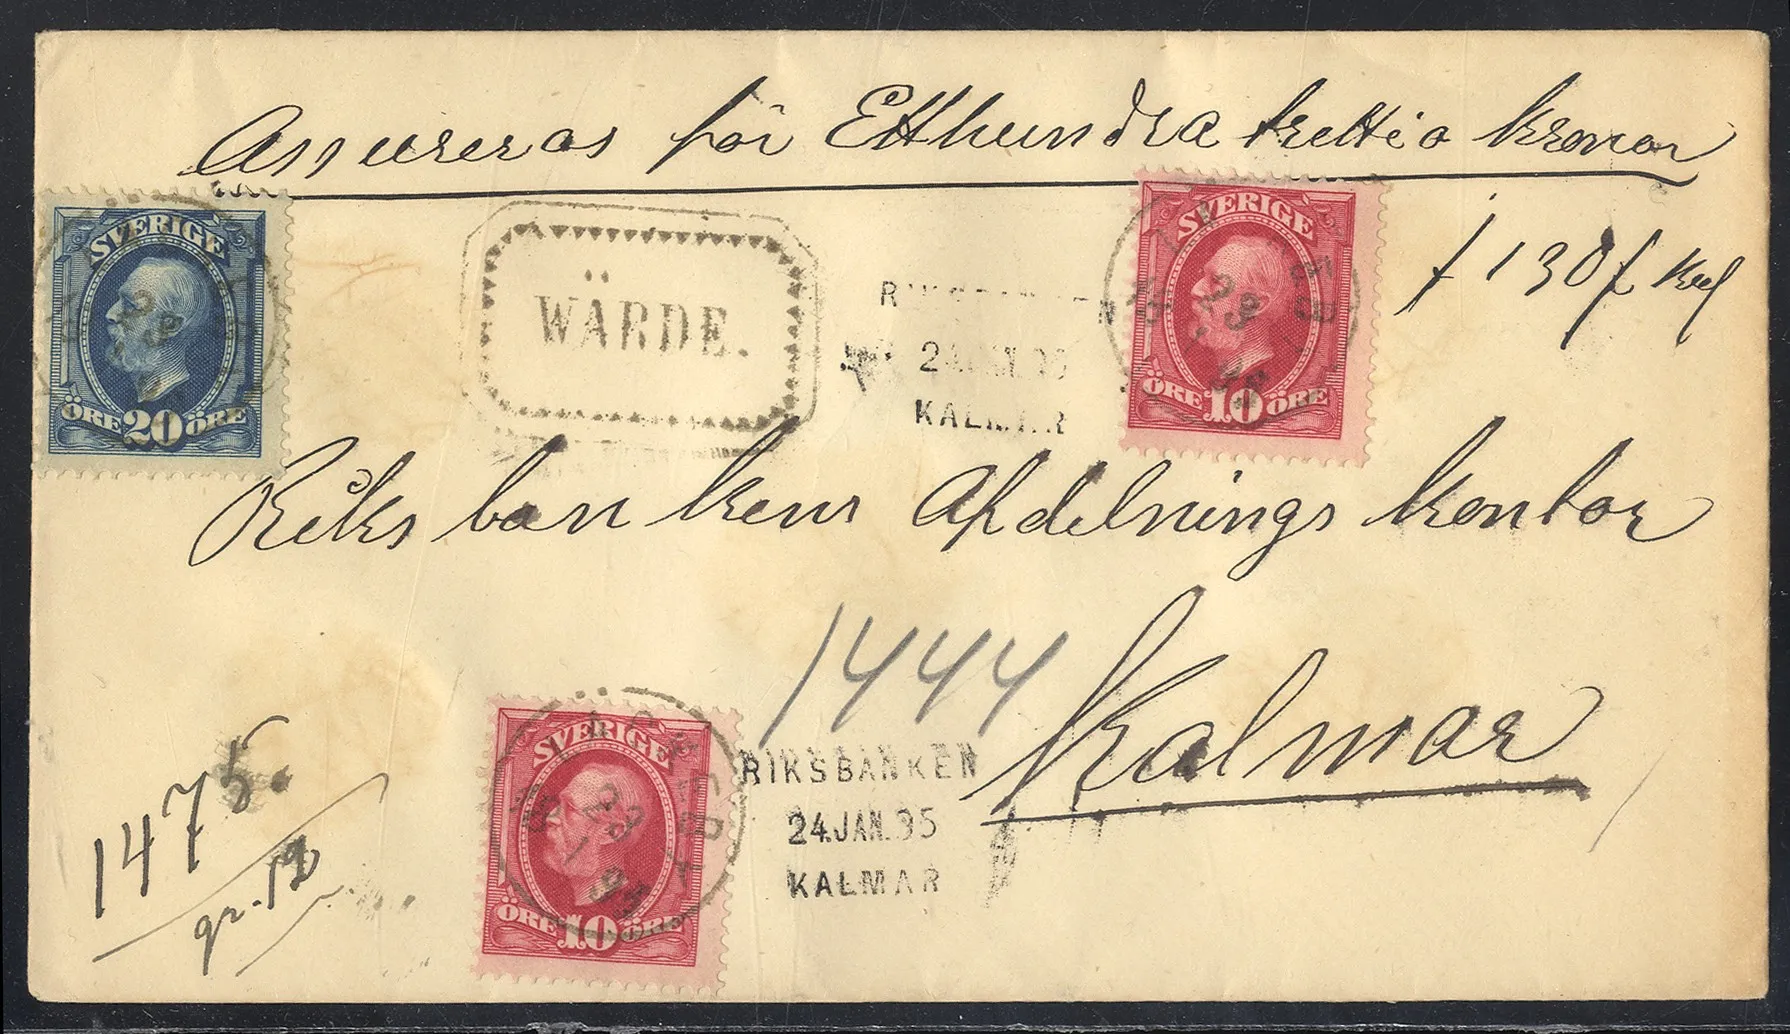 Assureras för Etthundra trettio kronor
130 kr
SVERIGE
ÖRE 20 ÖRE
WÄRDE.
RIKSBANKEN
24 JAN. 95
KALMAR
SVERIGE
23
1
95
ÖRE 10 ÖRE
Riksbankens Afdelningskontor
1444
Kalmar
SVERIGE
23
1
95
ÖRE 10 ÖRE
RIKSBANKEN
24 JAN. 95
KALMAR
1475.
gr. 12